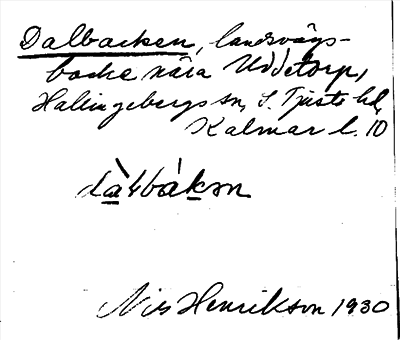 Dalbacken, landsvägs-
backe nära Uddetorp,
Hallingebergs sn, S. Tjusts hd,
Kalmar l. 10
dàɫbákən
Nils Henrikson 1930